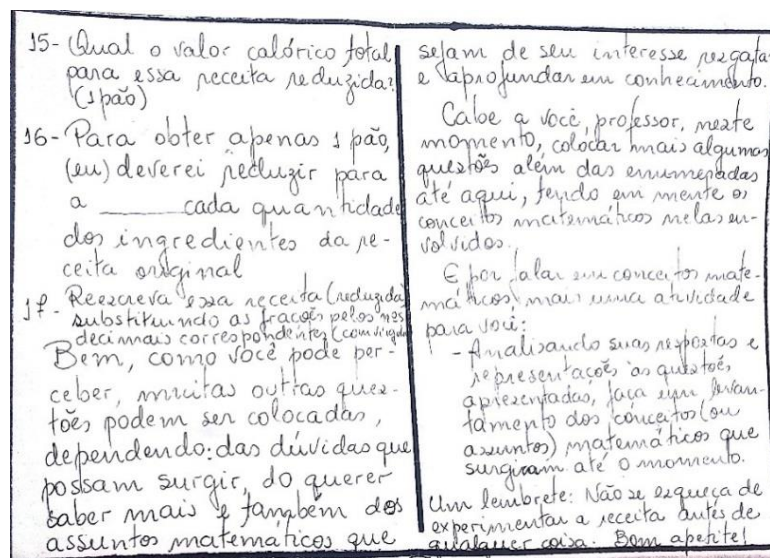 15- Qual o valor calórico total
para essa receita reduzida?
(1 pão)
16- Para obter apenas 1 pão,
(eu) deverei reduzir para
a ______ cada quantidade
dos ingredientes da re-
ceita original
17- Reescreva essa receita (reduzida)
substituindo as frações pelos nos
decimais correspondentes (com vírgula)
Bem, como você pode per-
ceber, muitas outras ques-
tões podem ser colocadas,
dependendo: das dúvidas que
possam surgir, do querer
saber mais e também dos
assuntos matemáticos que
sejam de seu interesse resgatar
e aprofundar em conhecimento.
Cabe a você, professor, neste
momento, colocar mais algumas
questões além das enumeradas
até aqui, tendo em mente os
conceitos matemáticos nelas en-
volvidos.
E por falar em conceitos mate-
máticos, mais uma atividade
para você:
- Analisando suas respostas e
representações às questões
apresentadas, faça um levan-
tamento dos conceitos (ou
assuntos) matemáticos que
surgiram até o momento.
Um lembrete: Não se esqueça de
experimentar a receita antes de
qualquer coisa. Bom apetite!